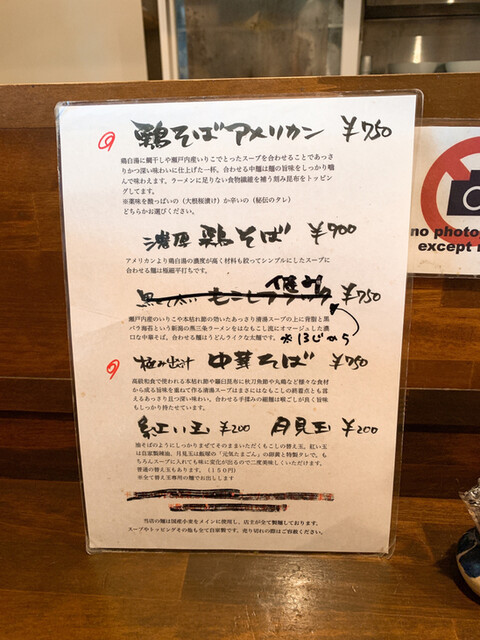 鶏そばアメリカン ¥750
鶏白湯に鯛干しや瀬戸内産いりこでとったスープを合わせることであっさ
りかつ深い味わいに仕上げた一杯。合わせる中麺は麺の旨味をしっかり噛
んで味わえます。ラーメンに足りない食物繊維を補う刻み昆布をトッピン
グしてます。
※薬味を酸っぱいの（大根桜漬け）か辛いの（秘伝のタレ）
どちらかお選びください。
濃厚 鶏そば ¥900
アメリカンより鶏白湯の濃度が高く材料も絞ってシンプルにしたスープに
合わせる麺は極細平打ちです。
¥750
瀬戸内産のいりこや本枯れ節の効いたあっさり清湯スープの上に背脂と黒
バラ海苔という新潟の燕三条ラーメンをはなもこし流にオマージュした濃
口な中華そば。合わせる麺はうどんライクな太麺です。
※13じから
極み出汁 中華そば ¥750
高級和食で使われる本枯れ節や羅臼昆布に秋刀魚節や丸鶏など様々な食材
から成る旨味を重ねて作る清湯スープはまさにはなもこしの終着点とも言
えるあっさり且つ深い味わい。合わせる手揉みの細麺は喉ごしが良く旨味
もしっかり持たせています。
紅い玉 ¥200 月見玉 ¥200
油そばのようにしっかりまぜてそのままいただくもこしの替え玉。紅い玉
は自家製辣油、月見玉は飯塚の「元気たまご」の卵黄と特製タレで。も
ちろんスープに入れても味に変化が出るので二度美味しくいただけます。
普通の替え玉もあります。（150円）
※全て替え玉専用の麺でお出しします
当店の麺は国産小麦をメインに使用し、店主が全て製麺しております。
スープやトッピングその他も全て自家製です。売り切れの際はご容赦ください。
no photo
except